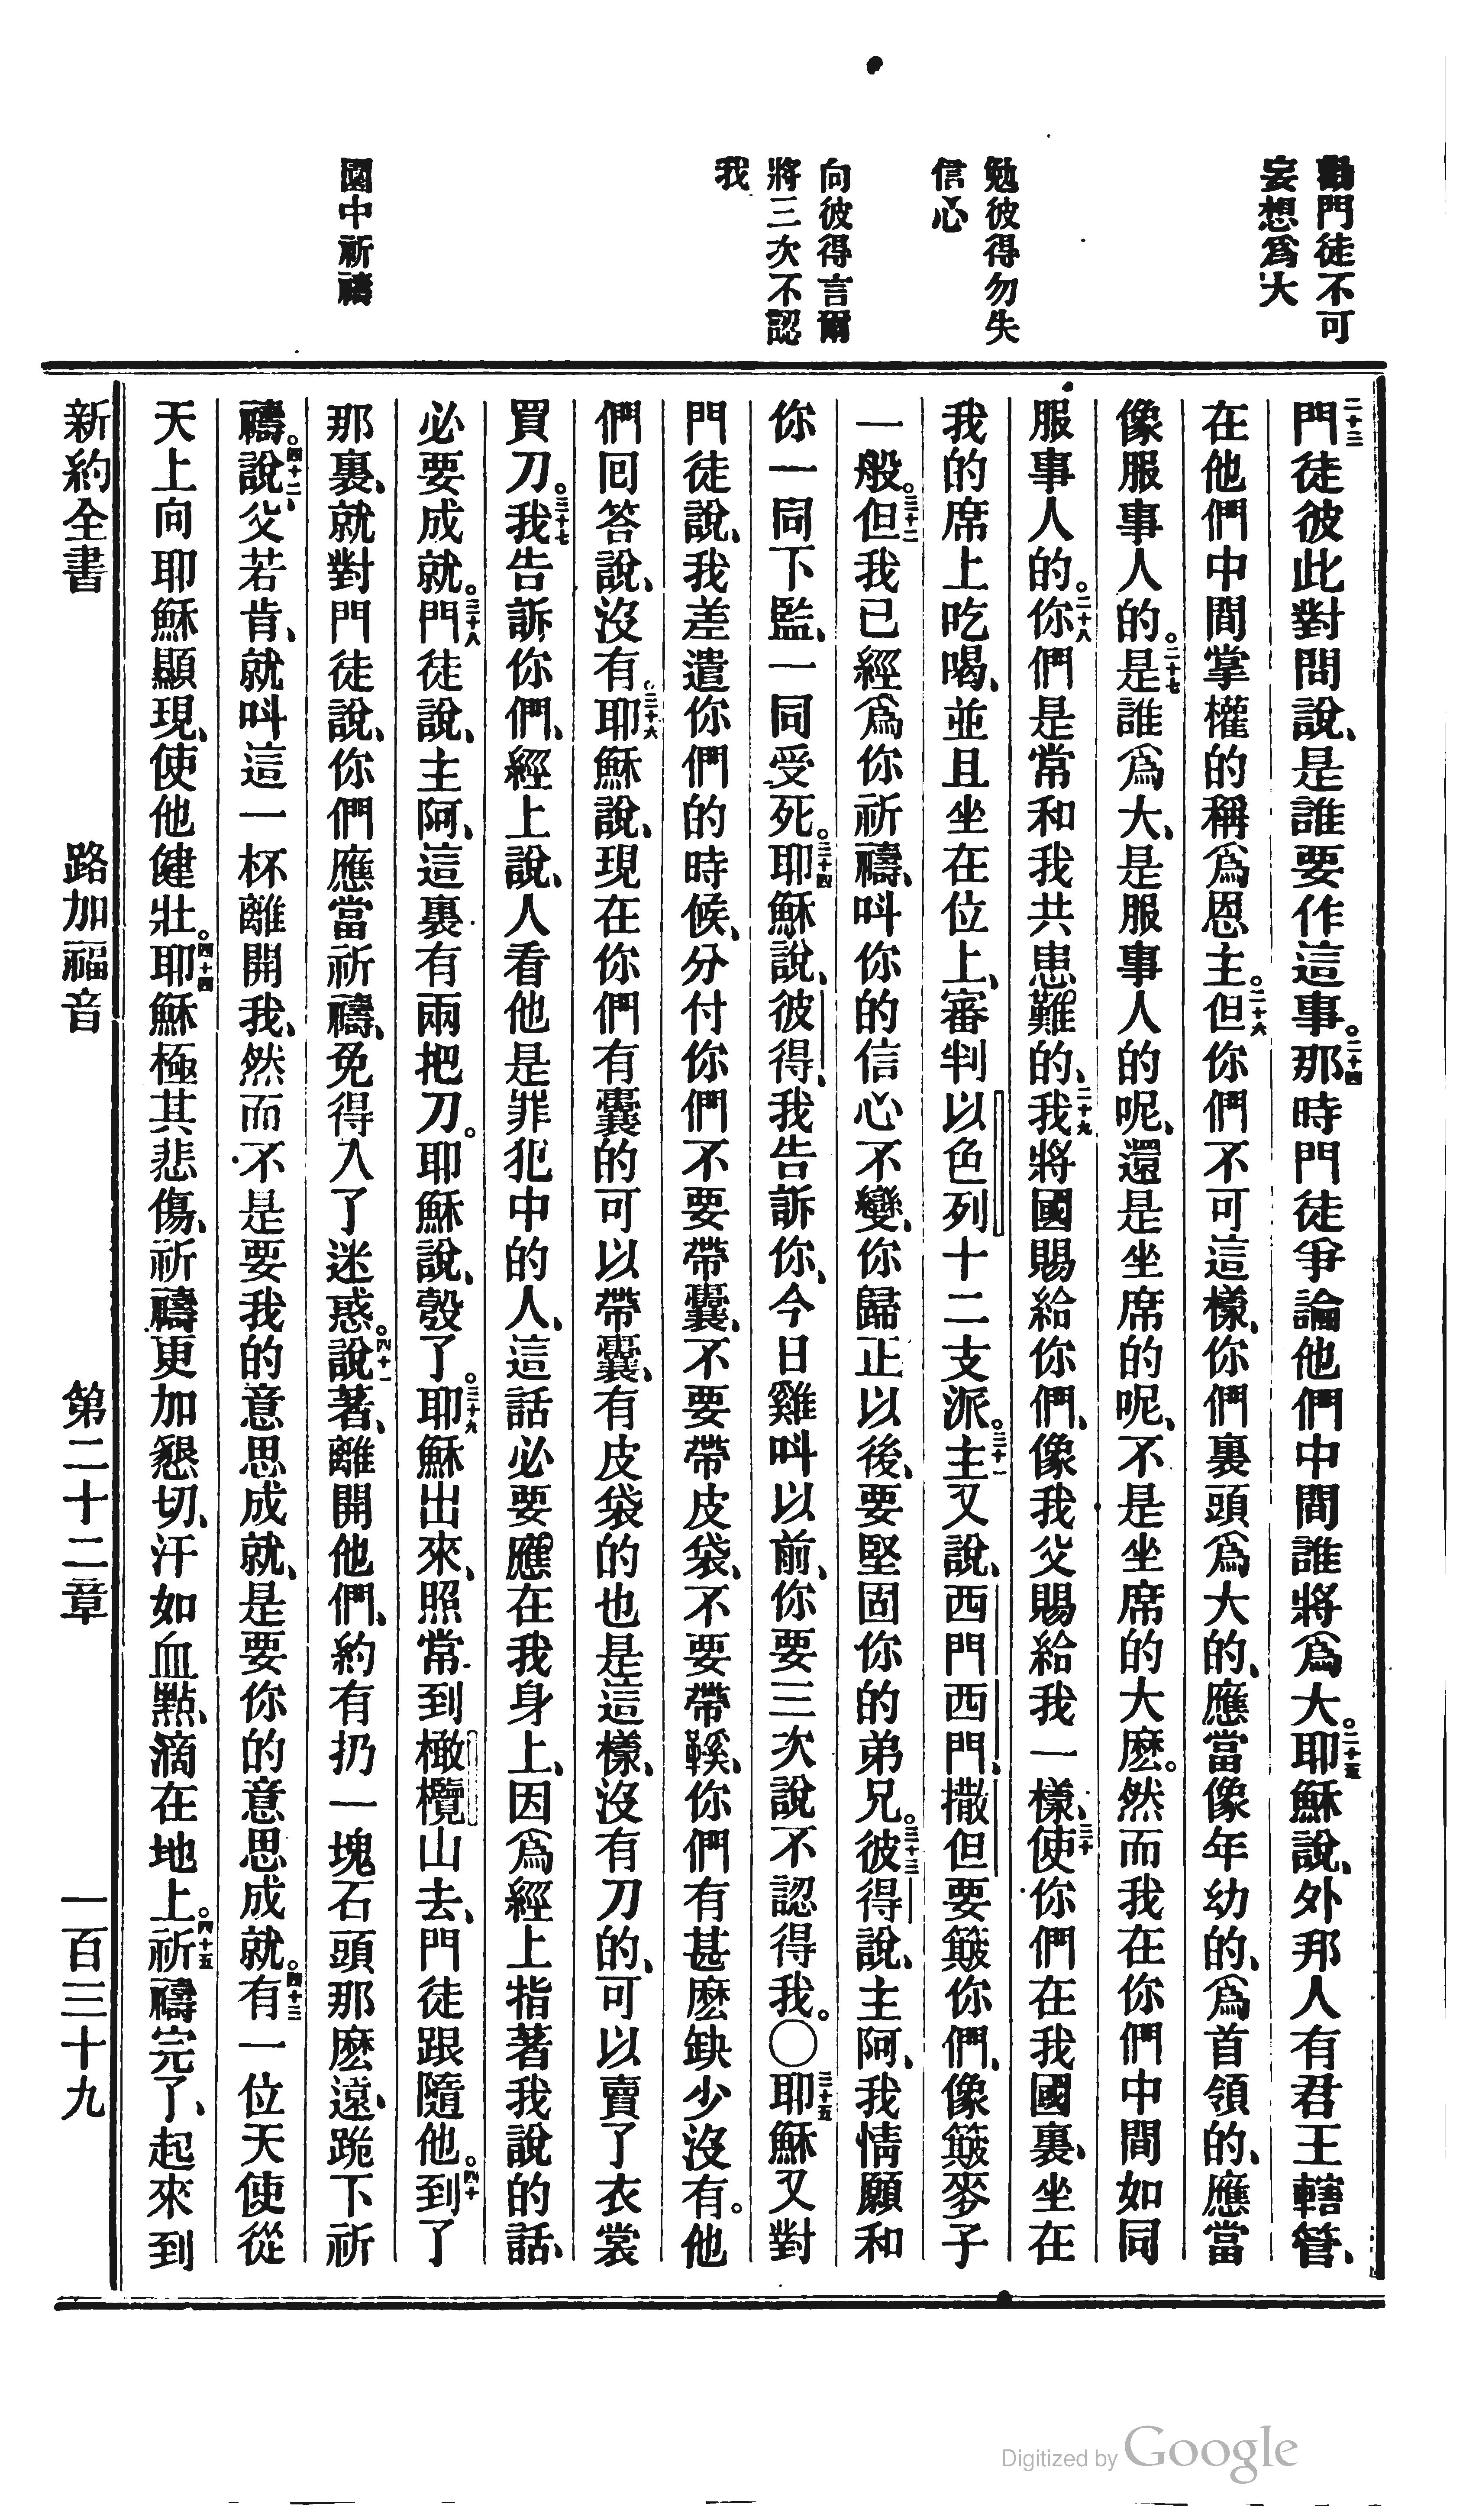 勸門徒不可
妄想爲大
勉彼得勿失
信心
向彼得言爾
將三次不認
我
園中祈禱
二十三門徒彼此對問說、是誰要作這事。二十四那時門徒爭論他們中間誰將爲大。二十五耶穌說、外邦人有君王轄管、
在他們中間掌權的稱爲恩主。二十六但你們不可這樣、你們裏頭爲大的、應當像年幼的、爲首領的、應當
像服事人的。二十七是誰爲大、是服事人的呢、還是坐席的呢、不是坐席的大麽。然而我在你們中間如同
服事人的。二十八你們是常和我共患難的、二十九我將國賜給你們、像我父賜給我一樣、三十使你們在我國裏、坐在
我的席上吃喝、並且坐在位上、審判以色列十二支派。三十一主又說、西門西門、撒但要簸你們、像簸麥子
一般。三十二但我已經爲你祈禱、叫你的信心不變、你歸正以後、要堅固你的弟兄。三十三彼得說、主阿、我情願和
你一同下監、一同受死。三十四耶穌說、彼得、我告訴你、今日雞叫以前、你要三次說不認得我。〇三十五耶穌又對
門徒說、我差遣你們的時候、分付你們不要帶囊、不要帶皮袋、不要帶鞵、你們有甚麽缺少沒有。他
們回答說、沒有。三十六耶穌說、現在你們有囊的可以帶囊、有皮袋的也是這樣、沒有刀的、可以賣了衣裳
買刀。三十七我告訴你們、經上說、人看他是罪犯中的人、這話必要應在我身上、因爲經上指著我說的話、
必要成就。三十八門徒說、主阿、這裏有兩把刀。耶穌說、彀了。三十九耶穌出來、照常到橄欖山去、門徒跟隨他。四十到了
那裏、就對門徒說、你們應當祈禱、免得入了迷惑。四十一說著、離開他們、約有扔一塊石頭那麽遠、跪下祈
禱。四十二說、父若肯、就叫這一杯離開我、然而不是要我的意思成就、是要你的意思成就。四十三有一位天使從
天上向耶穌顯現、使他健壯。四十四耶穌極其悲傷、祈禱更加懇切、汗如血點、滴在地上。四十五祈禱完了、起來到
新約全書 路加福音 第二十二章 一百三十九
Digitized by Google